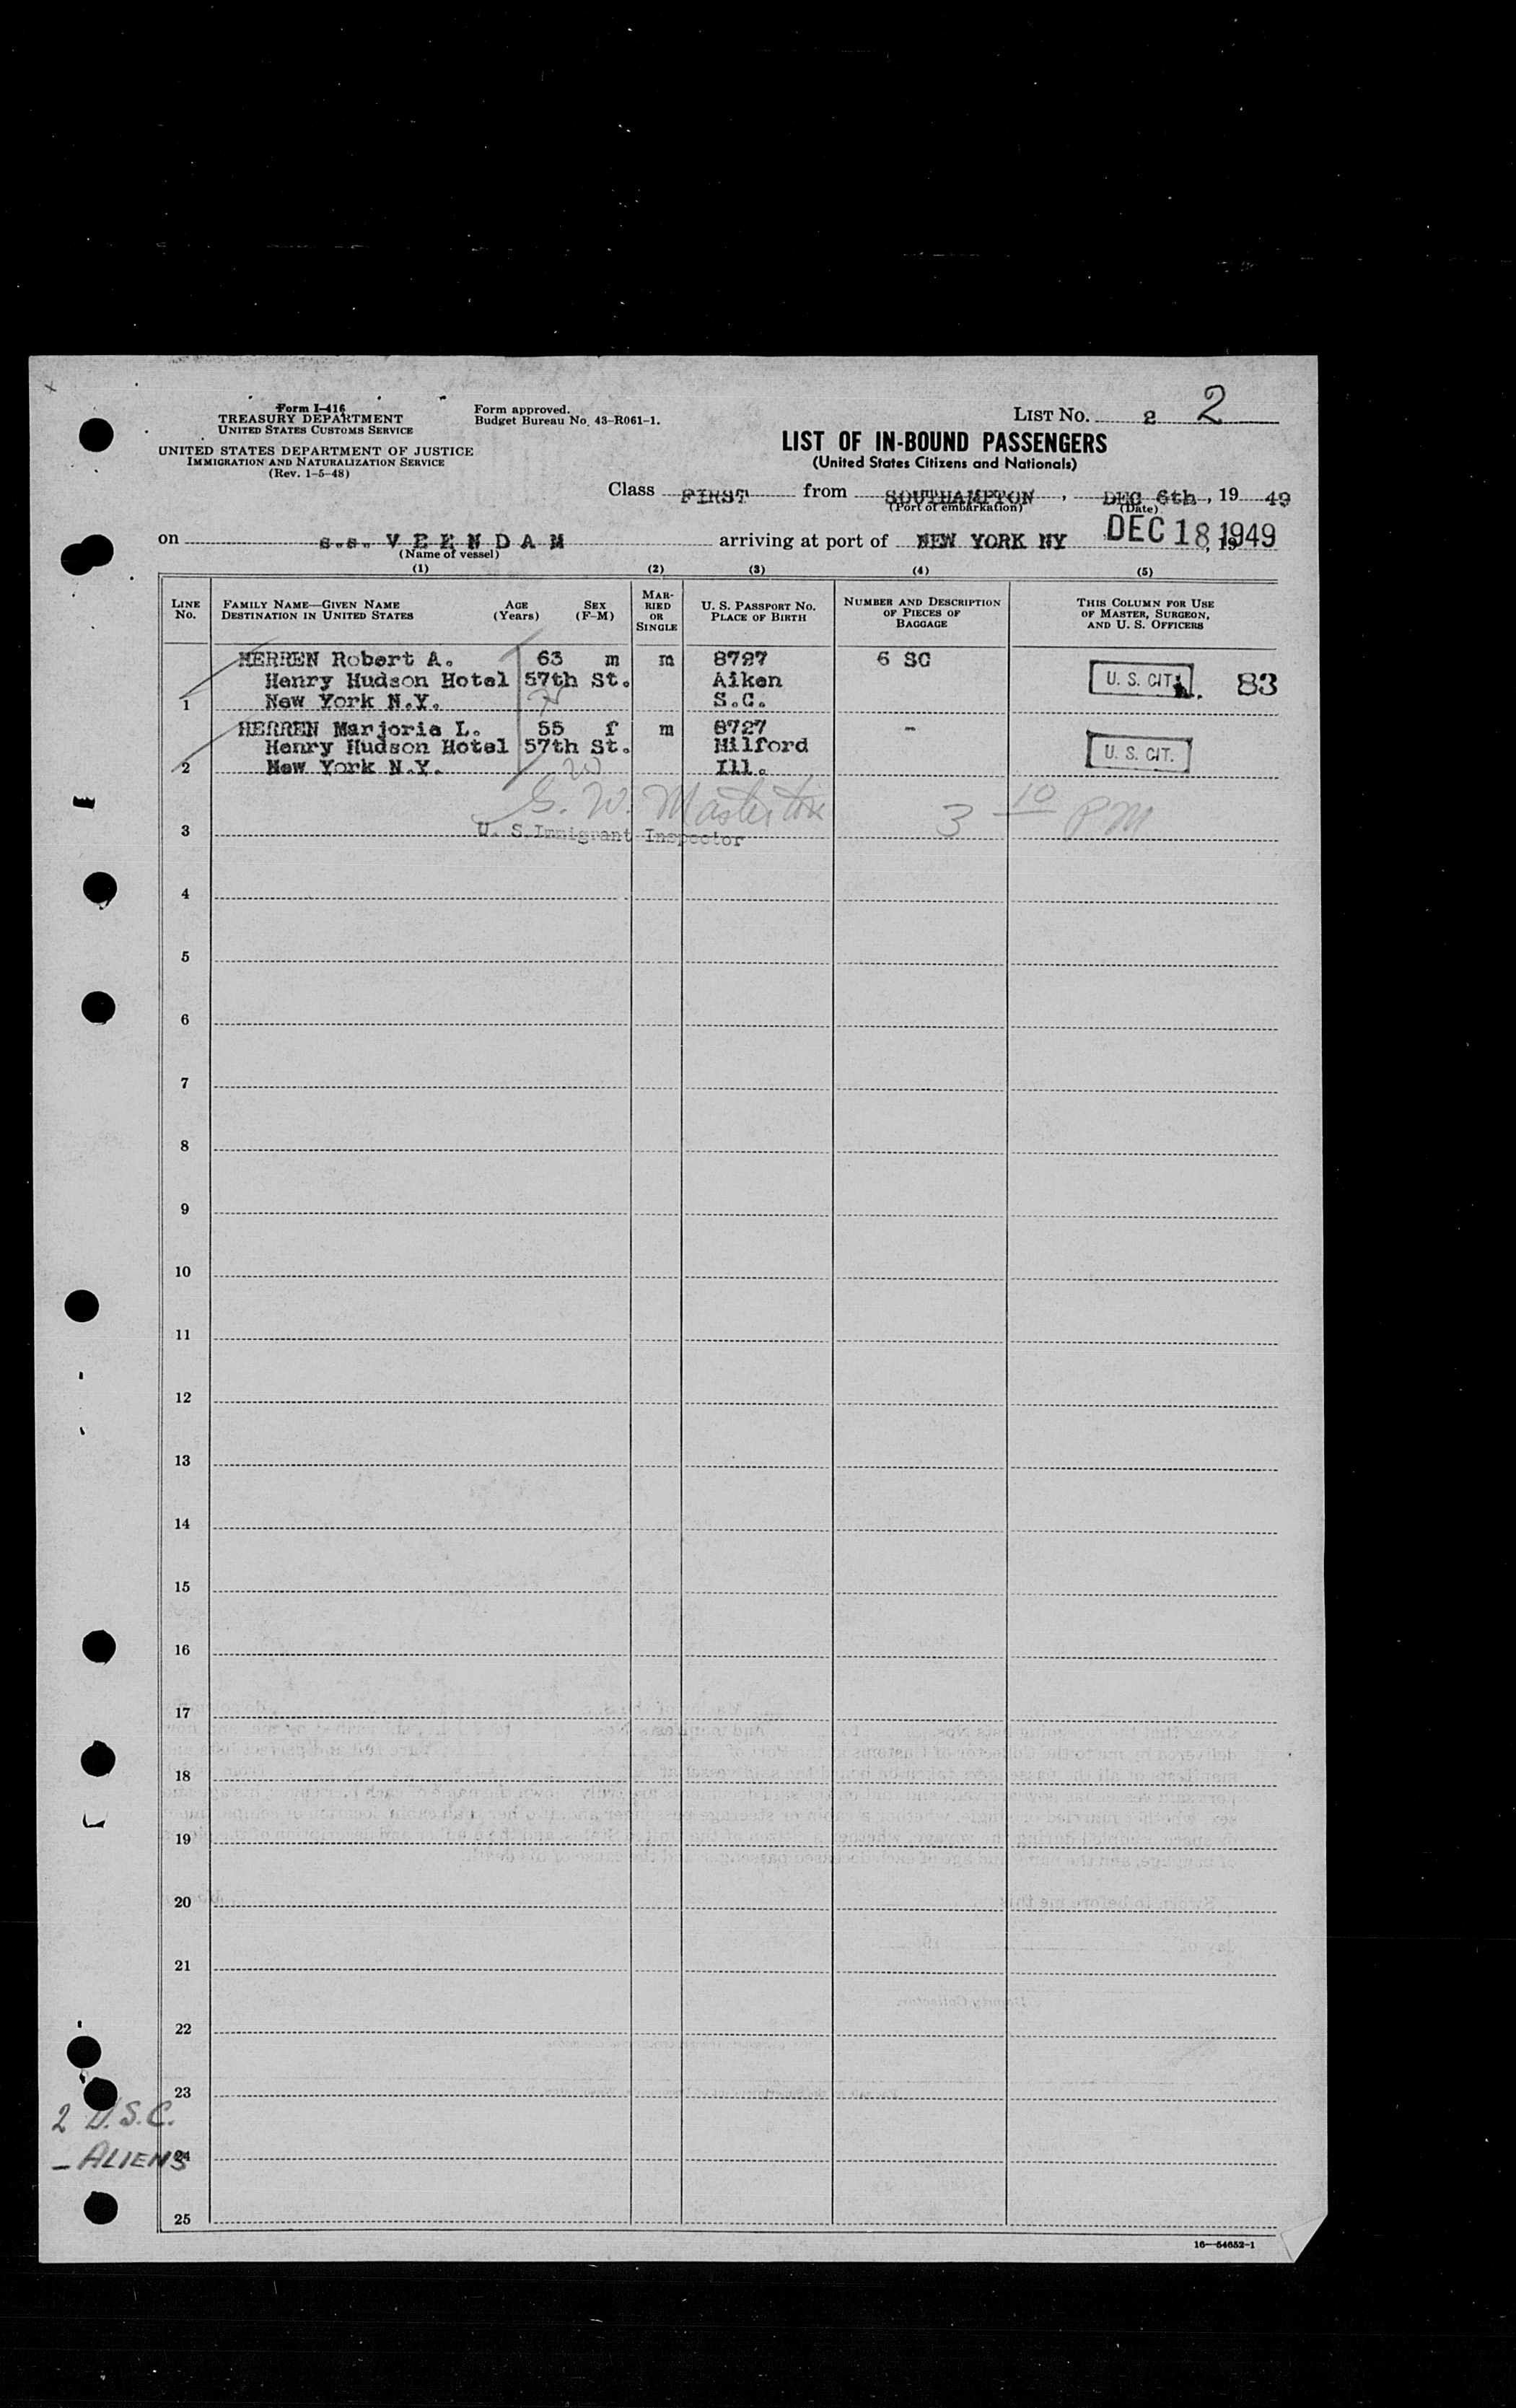 Form I-416
TREASURY DEPARTMENT
UNITED STATES CUSTOMS SERVICE
UNITED STATES DEPARTMENT OF JUSTICE
IMMIGRATION AND NATURALIZATION SERVICE
(Rev. 1-5-48)
Form approved.
Budget Bureau No. 43-R061-1.
LIST NO. 2 2
LIST OF IN-BOUND PASSENGERS
(United States Citizens and Nationals)
Class FIRST from SOUTHAMPTON, DEC 6th, 19 49
(Port of embarkation) (Date)
on s.s. VEENDAM arriving at port of NEW YORK NY DEC 18 1949, 19
(Name of vessel)
(1) (2) (3) (4) (5)
LINE No.
FAMILY NAME—GIVEN NAME
DESTINATION IN UNITED STATES
AGE (Years)
SEX (F-M)
MARRIED OR SINGLE
U. S. PASSPORT NO.
PLACE OF BIRTH
NUMBER AND DESCRIPTION OF PIECES OF BAGGAGE
THIS COLUMN FOR USE OF MASTER, SURGEON, AND U. S. OFFICERS
HERREN Robert A. 63 m m 8727 6 SC
Henry Hudson Hotel 57th St. Aiken U. S. CIT. 83
1 New York N.Y. S.C.
HERREN Marjorie L. 55 f m 8727 -
Henry Hudson Hotel 57th St. Milford U. S. CIT.
2 New York N.Y. W Ill.
G. W. Masterton 3 10 PM
3 U. S. Immigrant Inspector
4
5
6
7
8
9
10
11
12
13
14
15
16
17
18
19
20
21
22
23
2 U.S.C.
24
- ALIENS
25
16—54652-1